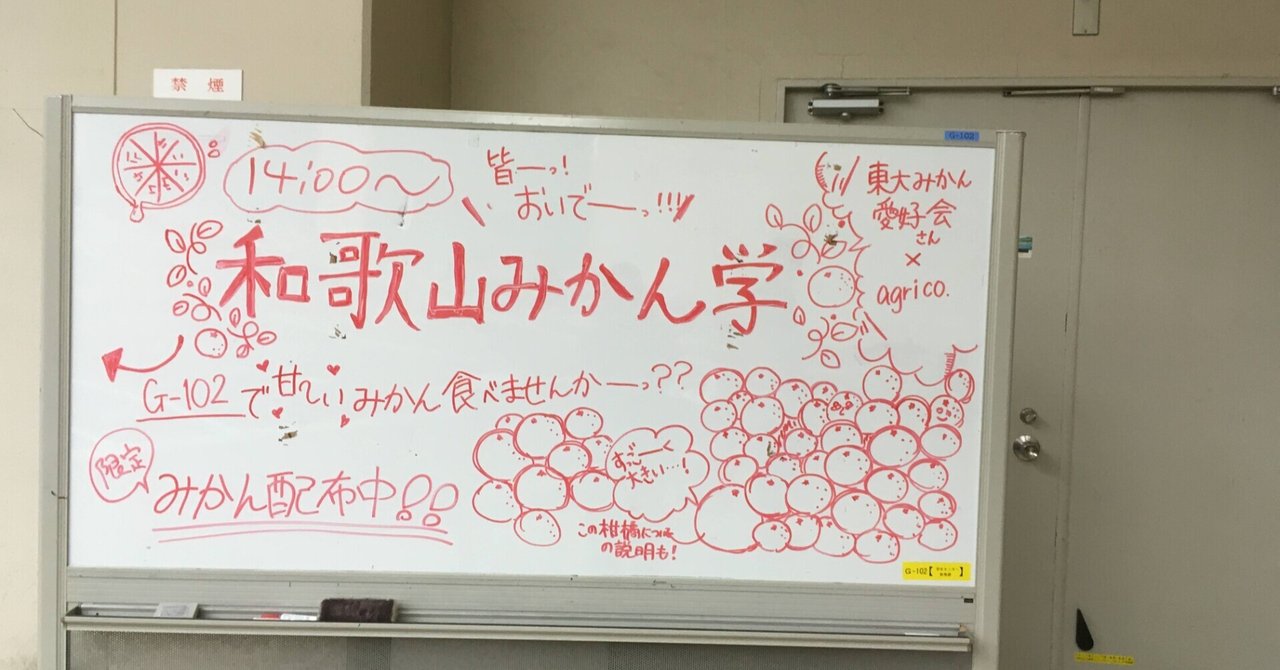 禁煙
G-102
14:00〜
皆ーっ!
おいでーーっ!!!
東大みかん
愛好会
さん
×
agrico.
和歌山みかん学
G-102で甘〜いみかん食べませんかーっ??
限定
みかん配布中!!
すっごーく
大きい…!
この柑橘について
の説明も!
G-102【
】